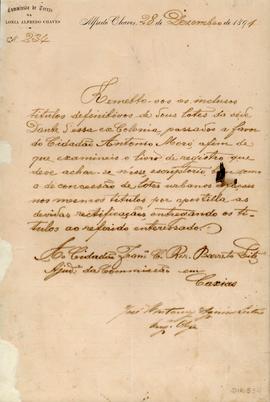 Commissão de Terras
NA
COLONIA ALFREDO CHAVES
Nº 234
Alfredo Chaves, 28 de Dezembro de 1894
Remetto-vos os inclusos
titulos definitivos de dous lotes da séde
Dante dessa ex Colonia passados a favor
do Cidadão Antonio Moro afim de
que examineis o livro de registro que
deve achar-se nesse escriptorio
a de concessão de lotes urbanos
nos mesmos titulos por apostilla as
devidas rectificações entregando os ti-
tulos ao referido interessado.
Ao Cidadão C. Barreto
Ajud. da Commissão em
Caxias
José Montaury